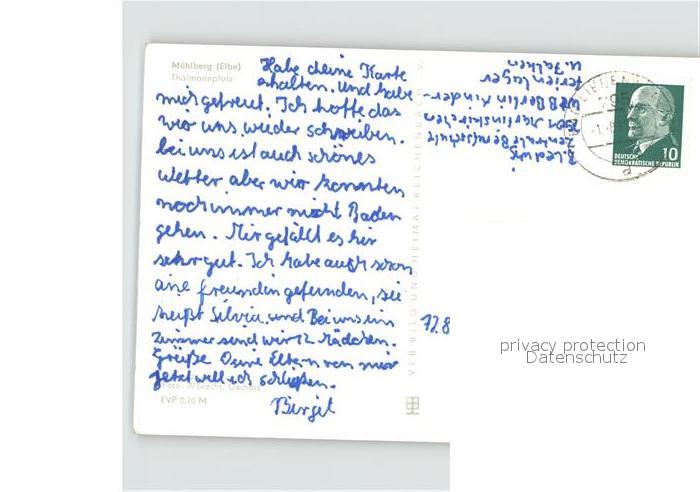 Mühlberg (Elbe)
Thälmannplatz
Habe deine Karte
erhalten. Und habe
mich gefreut. Ich hoffe das
wir uns wieder schreiben.
bei uns ist auch schönes
Wetter aber wir konnten
noch immer nicht Baden
gehen. Mir gefällt es hir
sehr gut. Ich habe auch schon
eine freundin gefunden, sie
heißt Silvia und Bei uns im
Zimmer sind wir 12 Mädchen.
Grüße Deine Eltern von mir
Jetzt will ich schließen.
Birgit
Foto: Albrecht, Oschatz
EVP 0,20 M
VERLAG BILD UND HEIMAT REICHENBACH
17.8
B. Ledwig
Zentrale Berufsschule
Martinskirchen
Berlin Kinder-
ferienlager
u. Falken
DEUTSCHE
DEMOKRATISCHE REPUBLIK
10
privacy protection
Datenschutz